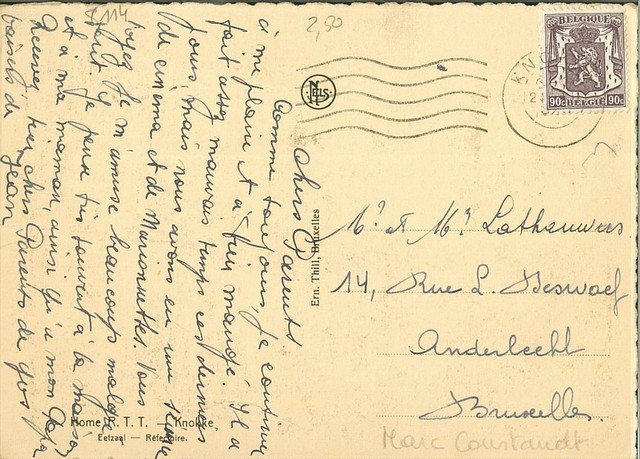 Chers Parents
Comme toujours, je continue
à me plaire et à bien manger. Il a
fait assez mauvais temps ces derniers
jours, mais nous avons eu une séance
de cinéma et de Marionnettes. Vous
voyez je m'amuse beaucoup malgré
tout. Je pense très souvent à la maison
et à ma maman, ainsi qu'à mon Papa
Recevez très chers Parents de gros
baisers de
Jean
114
2,50
NELS
Ern. Thill, Bruxelles
Home R. T. T. — Knokke
Eetzaal — Réfectoire.
BELGIQUE
90c BELGIË 90c
KNO
Mr et Me Lathouwers
14, Rue L.
Anderlecht
Bruxelles.
Marc Constandt